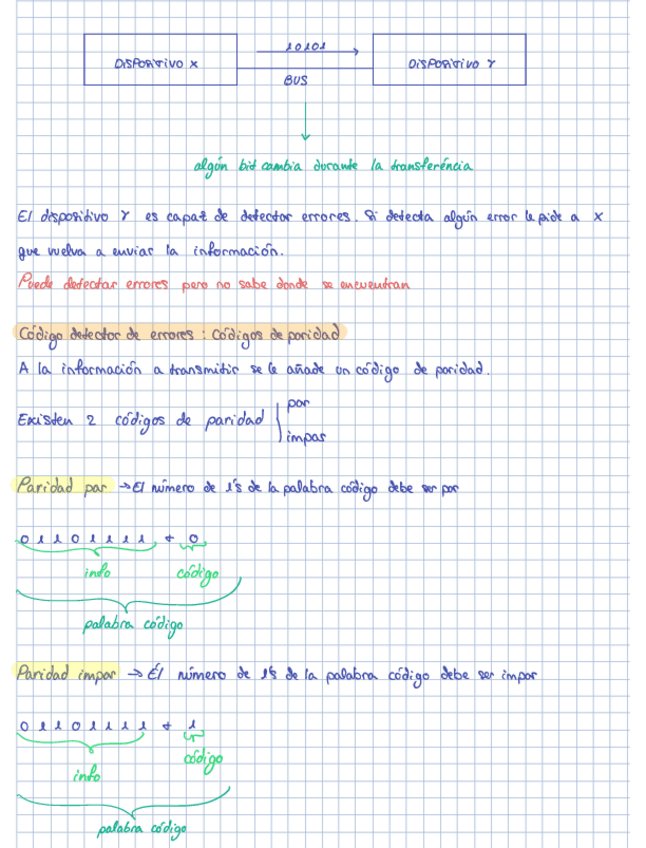 10101
DISPOSITIVO X
DISPOSITIVO Y
BUS
algún bit cambia durante la transferéncia
El dispositivo Y es capaz de detectar errores. Si detecta algún error le pide a X
que vuelva a enviar la información.
Puede detectar errores pero no sabe donde se encuentran
Código detector de errores : Códigos de paridad
A la información a transmitir se le añade un código de paridad.
par
Existen 2 códigos de paridad
impar
Paridad par → El número de 1's de la palabra código debe ser par
0 1 1 0 1 1 1 1 + 0
info código
palabra código
Paridad impar → Él número de 1's de la palabra código debe ser impar
0 1 1 0 1 1 1 1 + 1
código
info
palabra código